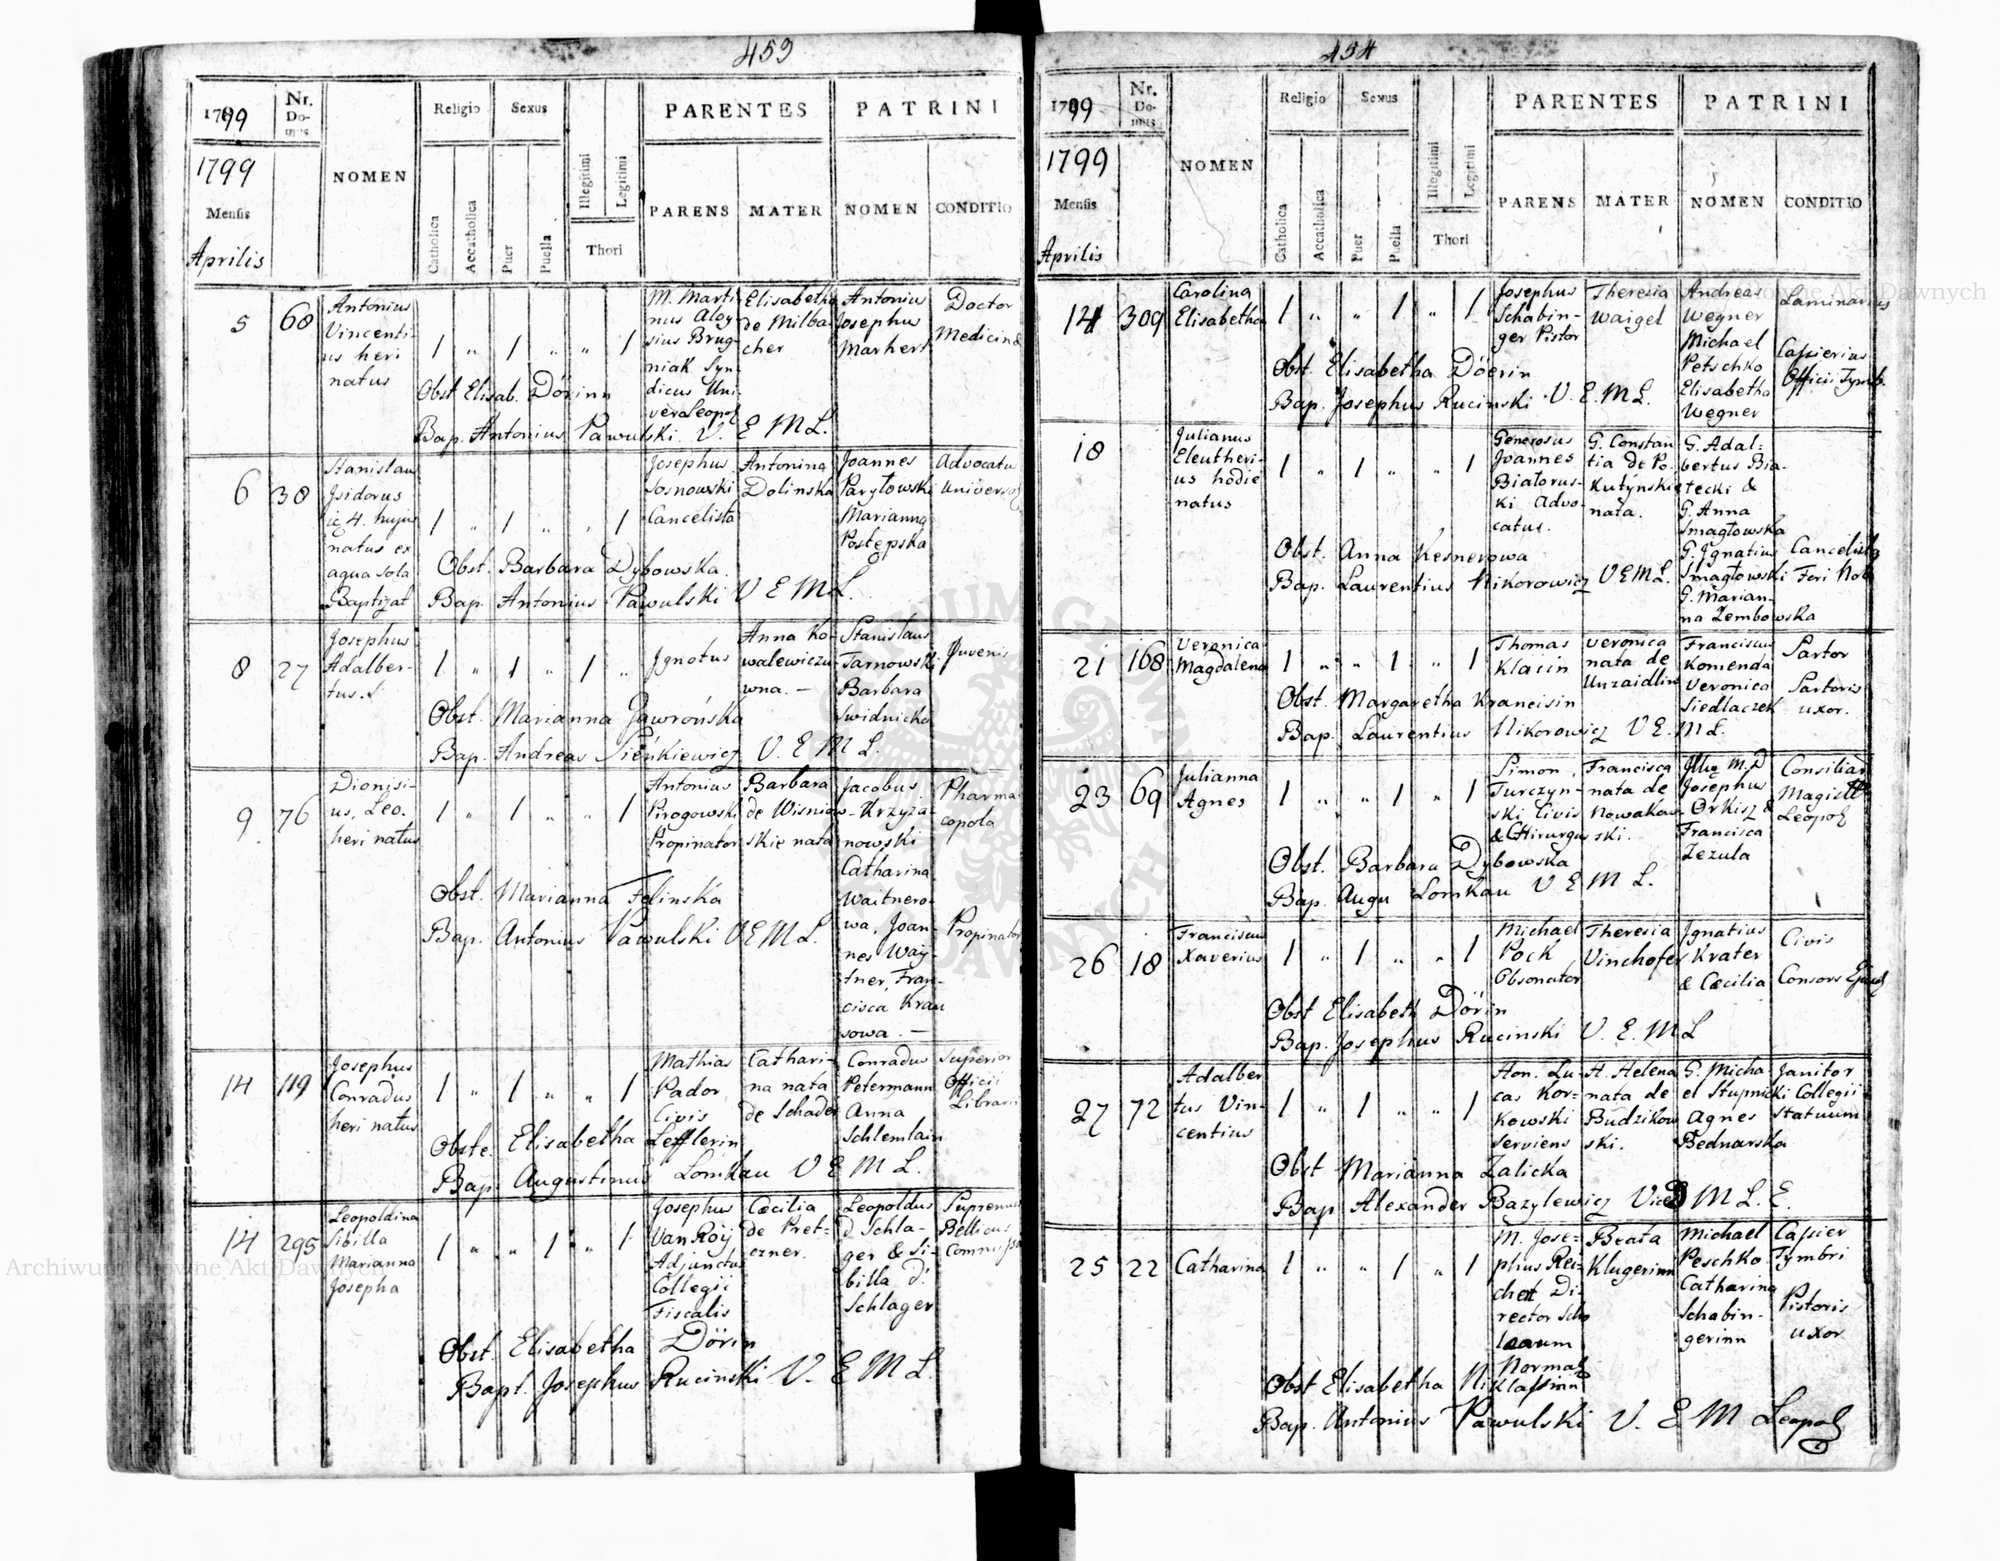 453
1799
Nr. Domus
NOMEN
Religio
Sexus
Illegitimi
Legitimi
Thori
PARENTES
PATRINI
1799
Mensis
Aprilis
Catholica
Accatholica
Puer
Puella
PARENS
MATER
NOMEN
CONDITIO
5
68
Antonius
Vincenti-
us heri
natus
M. Marti-
nus Aloy-
sius Brug-
niak Syn-
dicus Uni-
vers Leopol
Elisabetha
de Milba-
cher
Antonius
Josephus
Markert
Doctor
Medicinæ
Obst Elisab. Dörinn
Bap. Antonius Pawulski. V. E M L.
6
38
Stanislaus
Isidorus
ic 4. hujus
natus ex
aqua sola
Baptizat
Josephus
Sosnowski
Cancelista
Antonina
Dolinska
Joannes
Paryłowski
Marianna
Postępska
Advocatus
Obst. Barbara Dybowska.
Bap. Antonius Pawulski V E M L.
8
27
Josephus
Adalber-
tus
Ignotus
Anna Ko-
walewiczu-
wna. —
Stanislaus
Tarnowski
Barbara
Swidnicka
Juvenis
Obst. Marianna Jawrońska
Bap. Andreas Pieńkiewicz V. E M L.
9.
76
Dionisi-
us, Leo.
heri natus
Antonius
Pirogowski
Propinator
Barbara
de Wisniow-
skie nata
Jacobus
Krzyża-
nowski
Catharina
Waitnero-
wa, Joan-
nes Way-
tner, Fran-
cisca Krau
sowa. —
Pharma-
copola
Propinator
Obst. Marianna Felinska
Bap. Antonius Pawulski V E M L.
14
119
Josephus
Conradus
heri natus
Mathias
Pador
Civis
Cathari-
na nata
de Schader
Conradus
Petermann
Anna
Schlemlain
Superior
Officii
Librarii
Obste. Elisabetha Lefflerin
Bap. Augustinus Lomkau V E M L.
14
295
Leopoldina
Sibilla
Marianna
Josepha
Josephus
Van Roÿ
Adjunctus
Collegii
Fiscalis
Cæcilia
de Pret-
czner.
Leopoldus
d Schla-
ger & Si-
billa d:
Schlager
Supremus
Bellicus
Obst. Elisabetha Dörin
Bapt. Josephus Rucinski V. E M L.
454
1799
Nr. Domus
NOMEN
Religio
Sexus
Illegitimi
Legitimi
Thori
PARENTES
PATRINI
1799
Mensis
Aprilis
Catholica
Accatholica
Puer
Puella
PARENS
MATER
NOMEN
CONDITIO
14
309
Carolina
Elisabetha
Josephus
Schabin-
ger Pistor
Theresia
Waigel
Andreas
Wegner
Michael
Petschko
Elisabetha
Wegner
Laminarius
Cassierius
Officii Tymb.
Obst. Elisabetha Döerin
Bap. Josephus Rucinski V. E. M L.
18
Julianus
Eleutheri-
us hodie
natus
Generosus
Joannes
Białorus-
ki Advo-
catus.
G. Constan
tia de Po-
kutynskie
nata.
G. Adal:
bertus Bia-
łecki &
G. Anna
Smagłowska
G. Ignatius
Smagłowski
G. Marian-
na Zembowska
Cancelista
Fori Nob
Obst. Anna Kesnerowa
Bap. Laurentius Nikorowicz V E M L.
21
168
Veronica
Magdalena
Thomas
Klaiin
Veronica
nata de
Unzaidlin
Franciscus
Komenda
Veronica
Siedlaczek
Sartor
Sartoris
uxor.
Obst. Margaretha Krancisin
Bap. Laurentius Nikorowicz V E. M L.
23
69
Julianna
Agnes
Simon
Turczyn-
ski Civis
& Chirurgus
Francisca
nata de
Nowakow-
ski.
Illu. M. D
Josephus
Orkisz &
Francisca
Zezula
Consiliar
Magistr
Leopol
Obst. Barbara Dybowska
Bap. Augu Lomkau V E M L.
26
18
Franciscus
Xaverius
Michael
Pock
Obsonator
Theresia
Vinchofer
Ignatius
Krater
& Cæcilia
Civis
Consors Ejus
Obst Elisabeth Dörin
Bap. Josephus Rucinski V. E. M L
27
72
Adalber
tus Vin-
centius
Hon. Lu-
cas Kor-
kowski
Serviens
H. Helena
nata de
Budzikow
ski.
G. Micha-
el Stupnicki
Agnes
Bednarska
Janitor
Collegii
Statuum
Obst Marianna Zalicka
Bap Alexander Bazylewicz M L. E.
25
22
Catharina
M. Jose-
phus Rei-
chet Di-
rector Scho
laarum
Normal
Beata
Klugerinn
Michael
Peschko
Catharina
Schabin-
gerinn
Cassier
Tymbri
Pistoris
uxor
Obst Elisabetha Niklassinn
Bap. Antonius Pawulski V. E M Leopol
Archiwum Główne Akt Dawnych